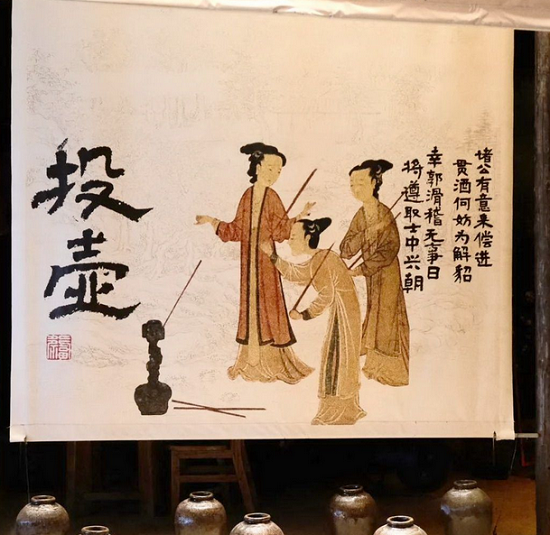 堵公有意来偿进
贯酒何妨为解貂
幸郭滑稽无争日
将遵取士中兴朝
投壶